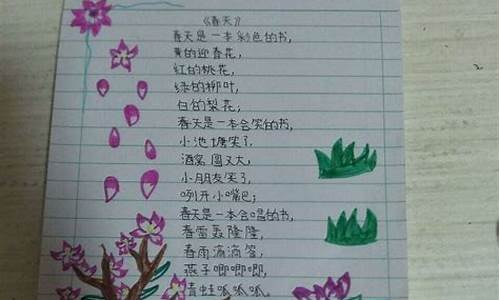 《春天》
春天是一本彩色的书,
黄的迎春花,
红的桃花,
绿的柳叶,
白的梨花,
春天是一本会笑的书,
小池塘笑了,
酒窝圆又大,
小朋友笑了,
咧开小嘴巴;
春天是一本会唱的书,
春雷轰隆隆,
春雨滴滴答,
燕子唧唧唧,
青蛙呱呱呱。